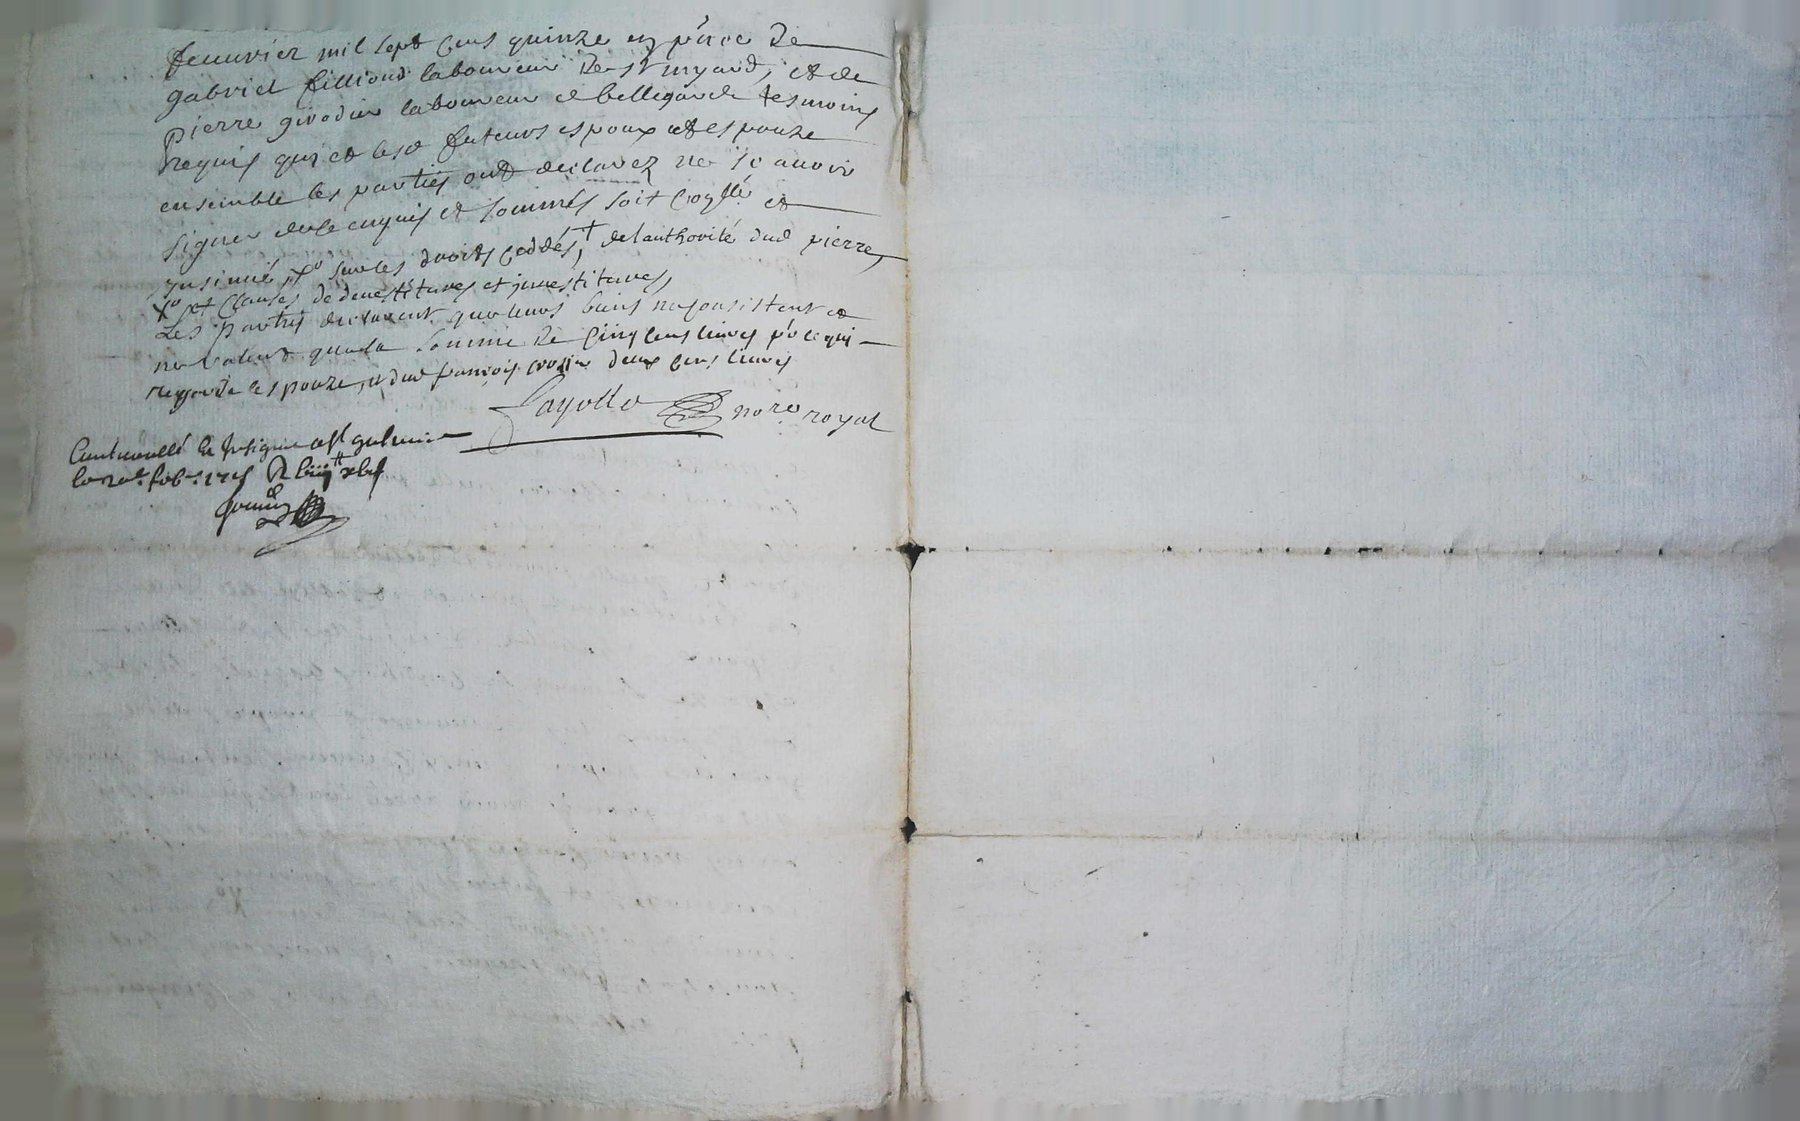 feuurier mil sept cens quinze en p̃nce de
gabriel fillioud laboureur de St myard, et de
pierre girodin laboureur de bellegarde tesmoins
requis qui et lesd futeurs espoux et espouze
ensemble les parties ont declarez ne sc auoir
signer de ce enquis et sommés soit et
insinué, sur les droits ceddés, + de lauthorité dud pierre,
et clauses de deuestitures et inuestitures,
Les parties declarent que leurs biens ne consistent et
ne valent que la somme de cinq cens liures p̃r ce qui
regarde lespouze, et dud françois deux cens liures
nore royal
Controuellé et Insigné a St
le 20e feb. 1715